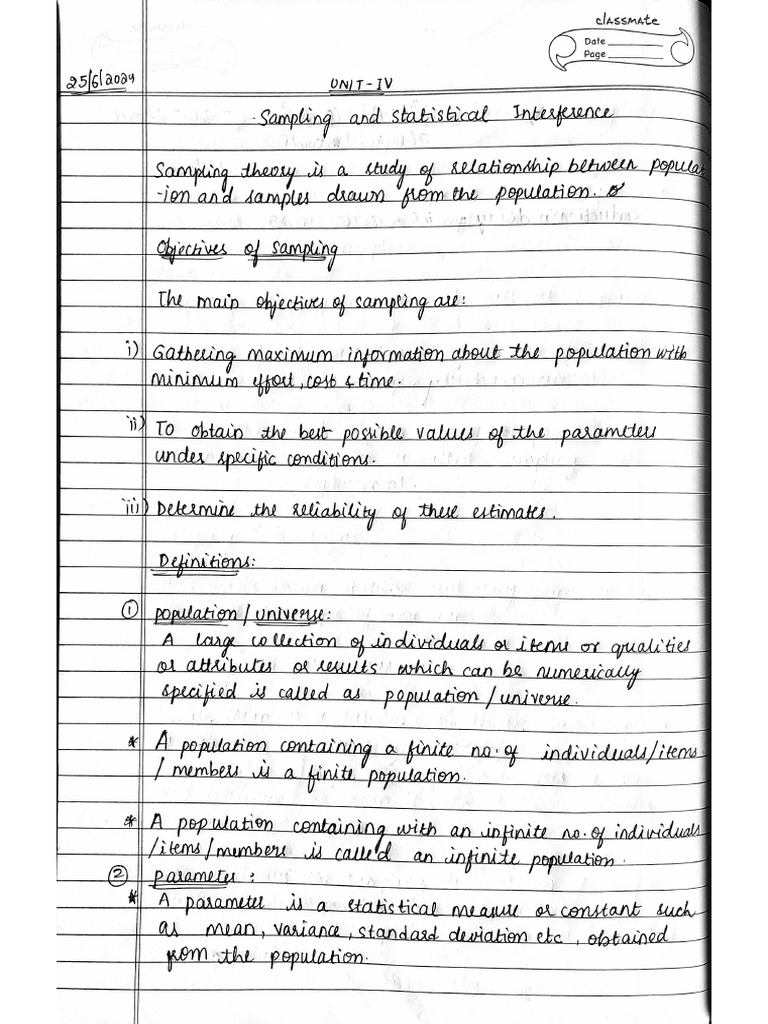 classmate
Date
Page
25/6/2024
UNIT-IV
Sampling and Statistical Interference
Sampling theory is a study of relationship between populat
-ion and samples drawn from the population.
Objectives of Sampling
The main objectives of sampling are:
i) Gathering maximum information about the population with
minimum effort, cost & time.
ii) To obtain the best possible values of the parameters
under specific conditions.
iii) Determine the reliability of these estimates.
Definitions:
① population / universe:
A large collection of individuals or items or qualities
or attributes or results which can be numerically
specified is called as population / universe.
* A population containing a finite no. of individuals/items
/ members is a finite population.
* A population containing with an infinite no. of individuals
/items/members is called an infinite population.
② parameter:
* A parameter is a statistical measure or constant such
as mean, variance, standard deviation etc, obtained
from the population.